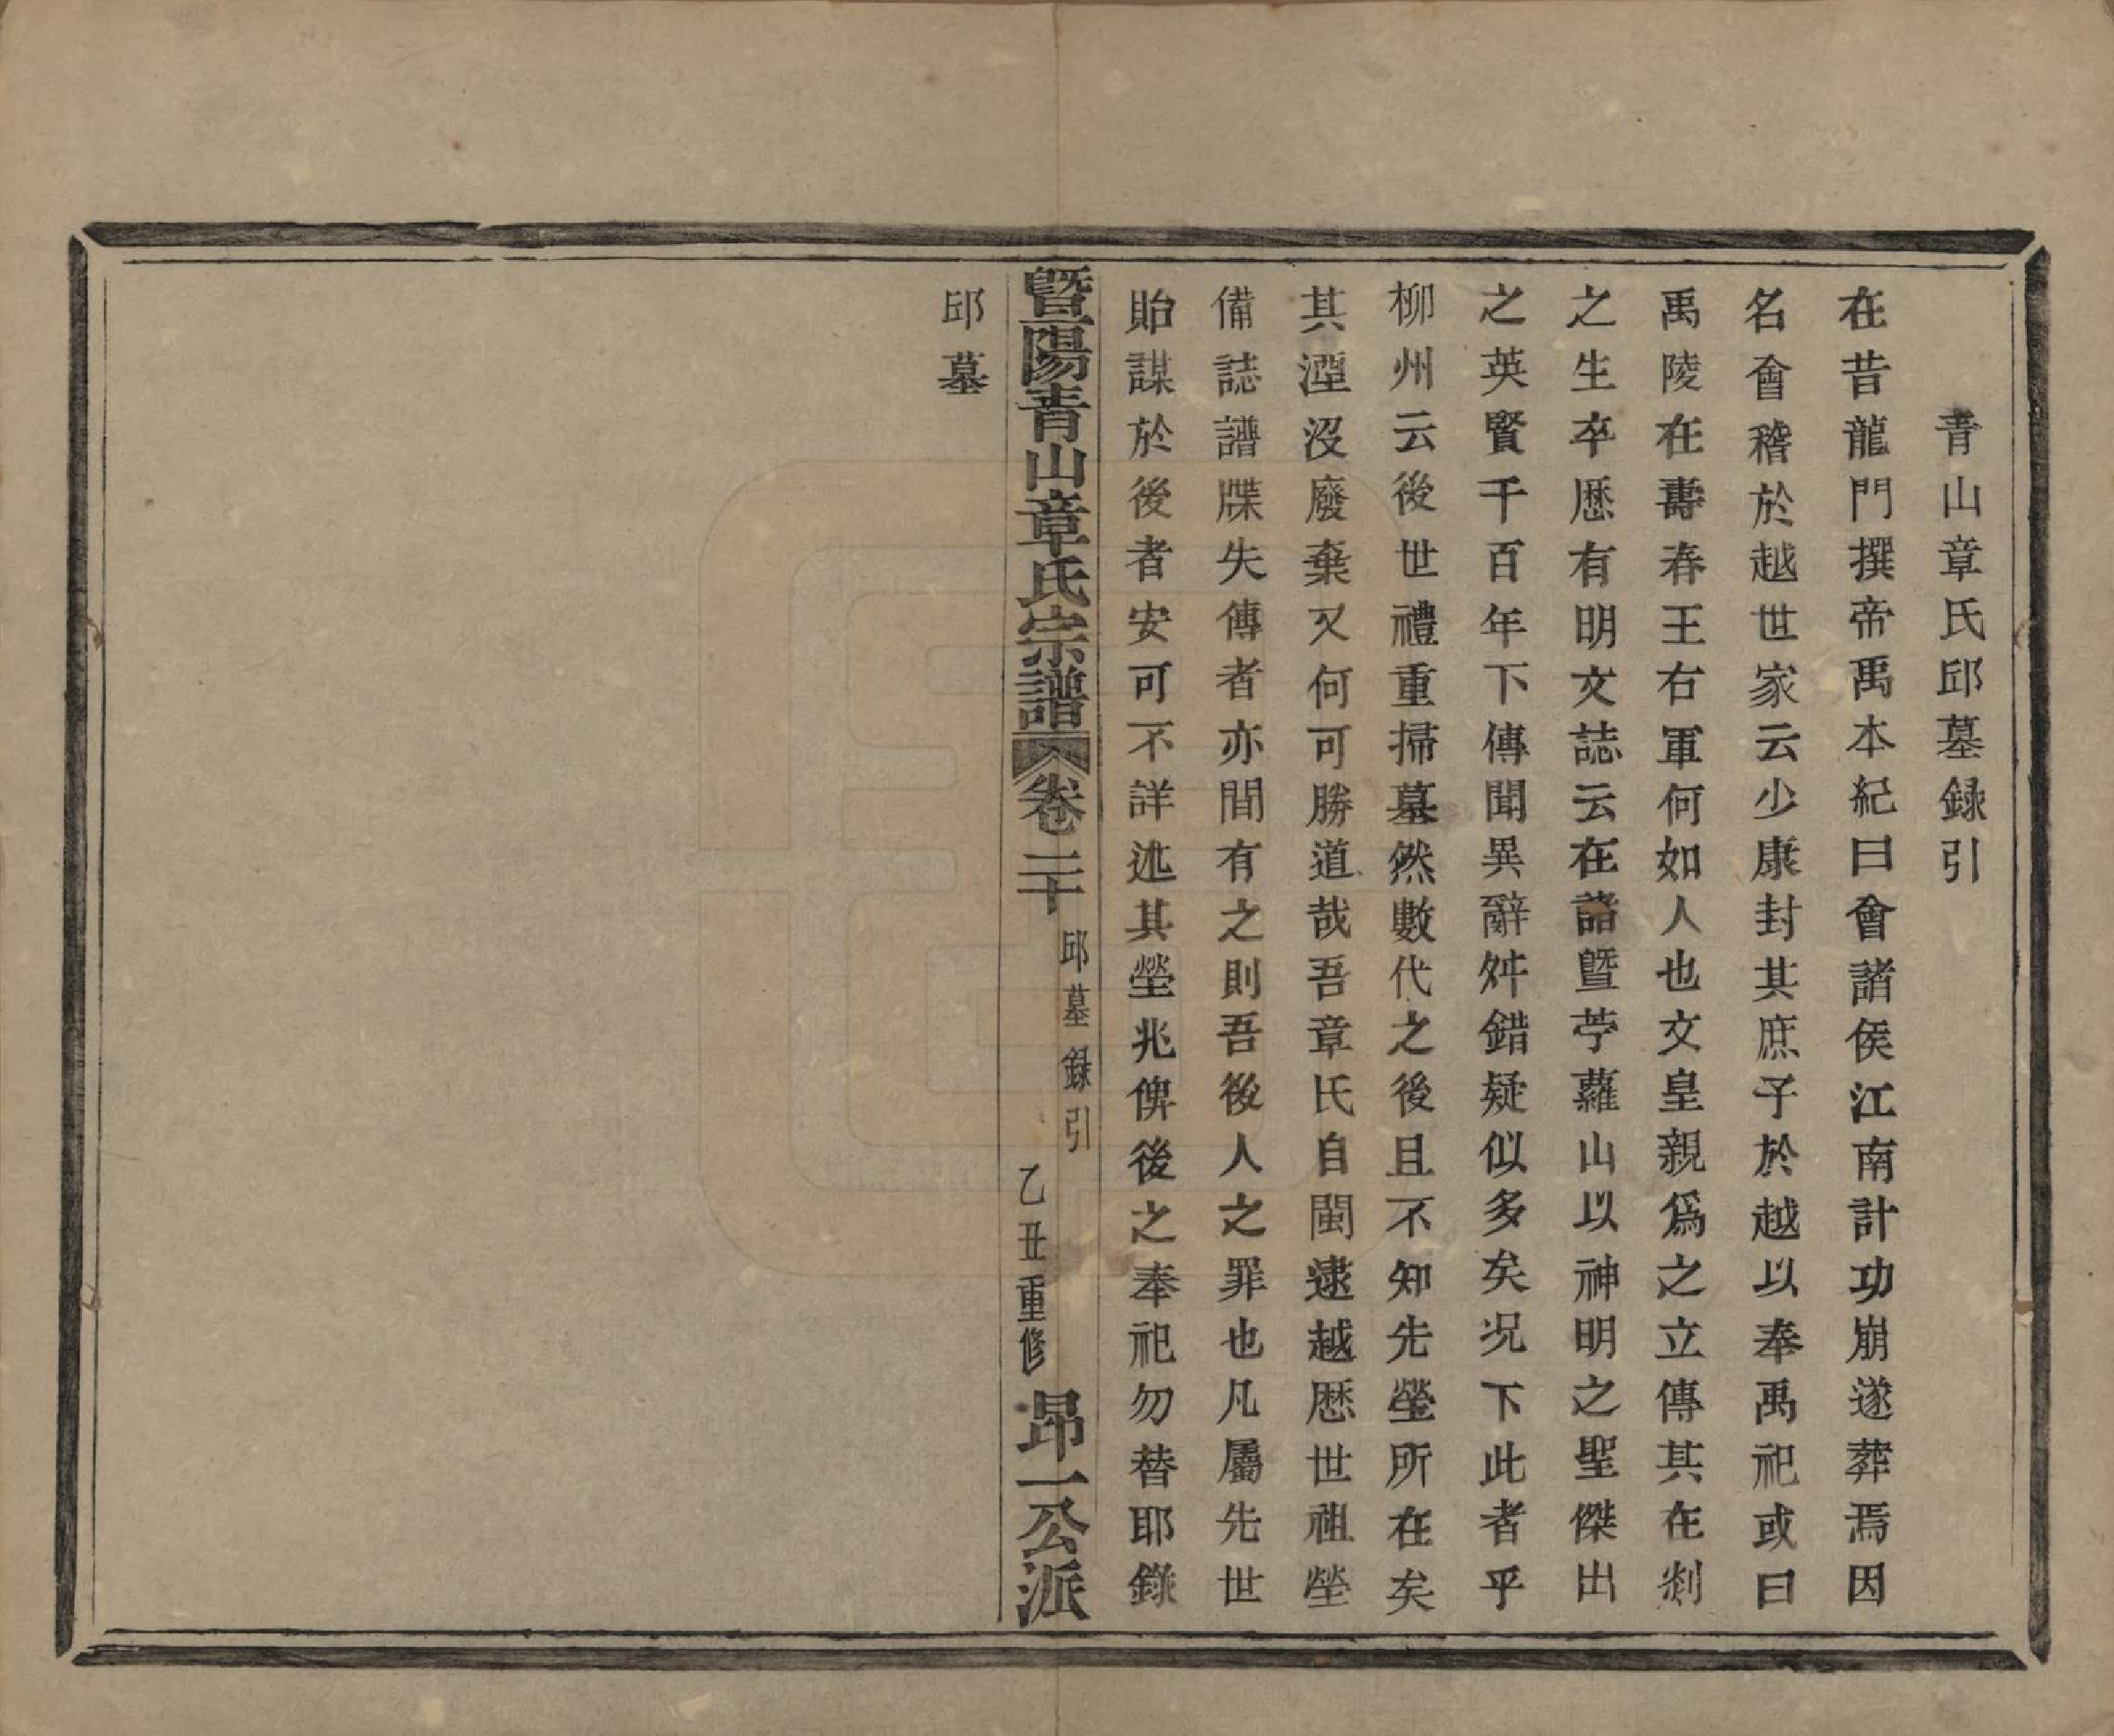 青山章氏邱墓録引
在昔龍門撰帝禹本紀曰會諸侯江南計功崩遂葬焉因
名會稽於越世家云少康封其庶子於越以奉禹祀或曰
禹陵在壽春王右軍何如人也文皇親爲之立傳其在剡
之生卒歷有明文誌云在諸曁苧蘿山以神明之聖傑出
之英賢千百年下傳聞異辭舛錯疑似多矣况下此者乎
柳州云後世禮重掃墓然數代之後且不知先塋所在矣
其湮沒廢棄又何可勝道哉吾章氏自閩逮越歷世祖塋
備誌譜牒失傳者亦間有之則吾後人之罪也凡屬先世
貽謀於後者安可不詳述其塋兆俾後之奉祀勿替耶錄
曁陽青山章氏宗譜 卷二十 邱墓錄引 乙丑重修 昻一公派
邱墓